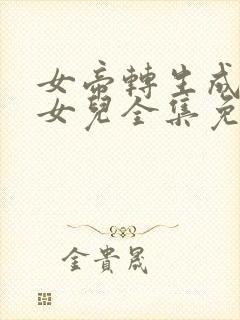 女帝轉生成
女兒全集免
金貴晟